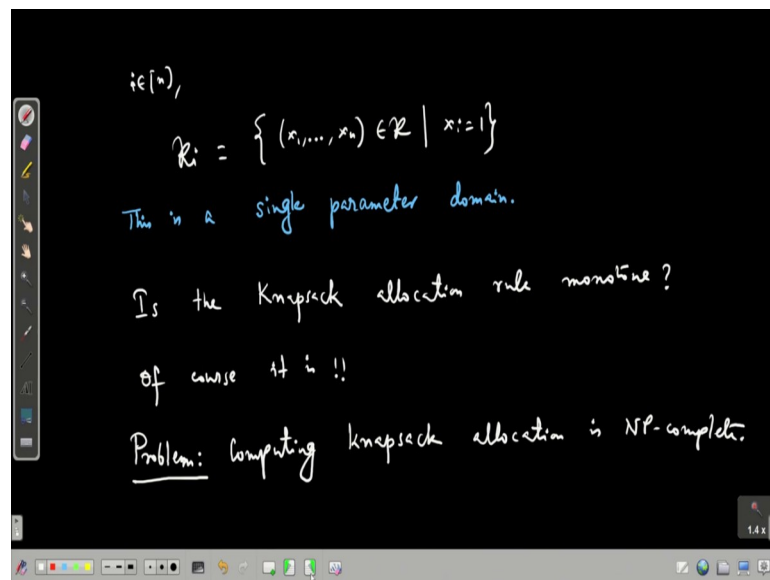 i∈[n],
R_i = { (x_1,..., x_n) ∈ R | x_i=1}
This is a single parameter domain.
Is the Knapsack allocation rule monotone?
Of course it is !!
Problem: Computing knapsack allocation is NP-complete.
1.4 x